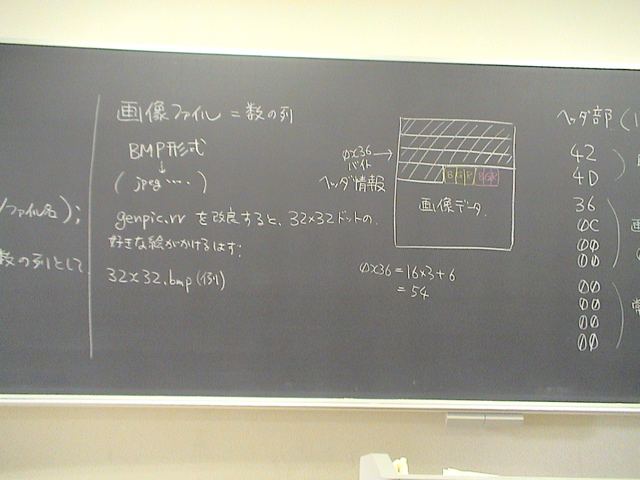 ファイル名);
数の列として
画像ファイル = 数の列
BMP形式
↓
(jpeg ‥‥)
genpic.rr を改良すると、32×32ドットの
好きな絵がかけるはず:
32×32.bmp (例)
0x36 →
バイト
ヘッダ情報
B G R B G R
画像データ
0x36 = 16×3+6
= 54
ヘッダ部 (
42
4D
36
0C
00
00
00
00
00
00